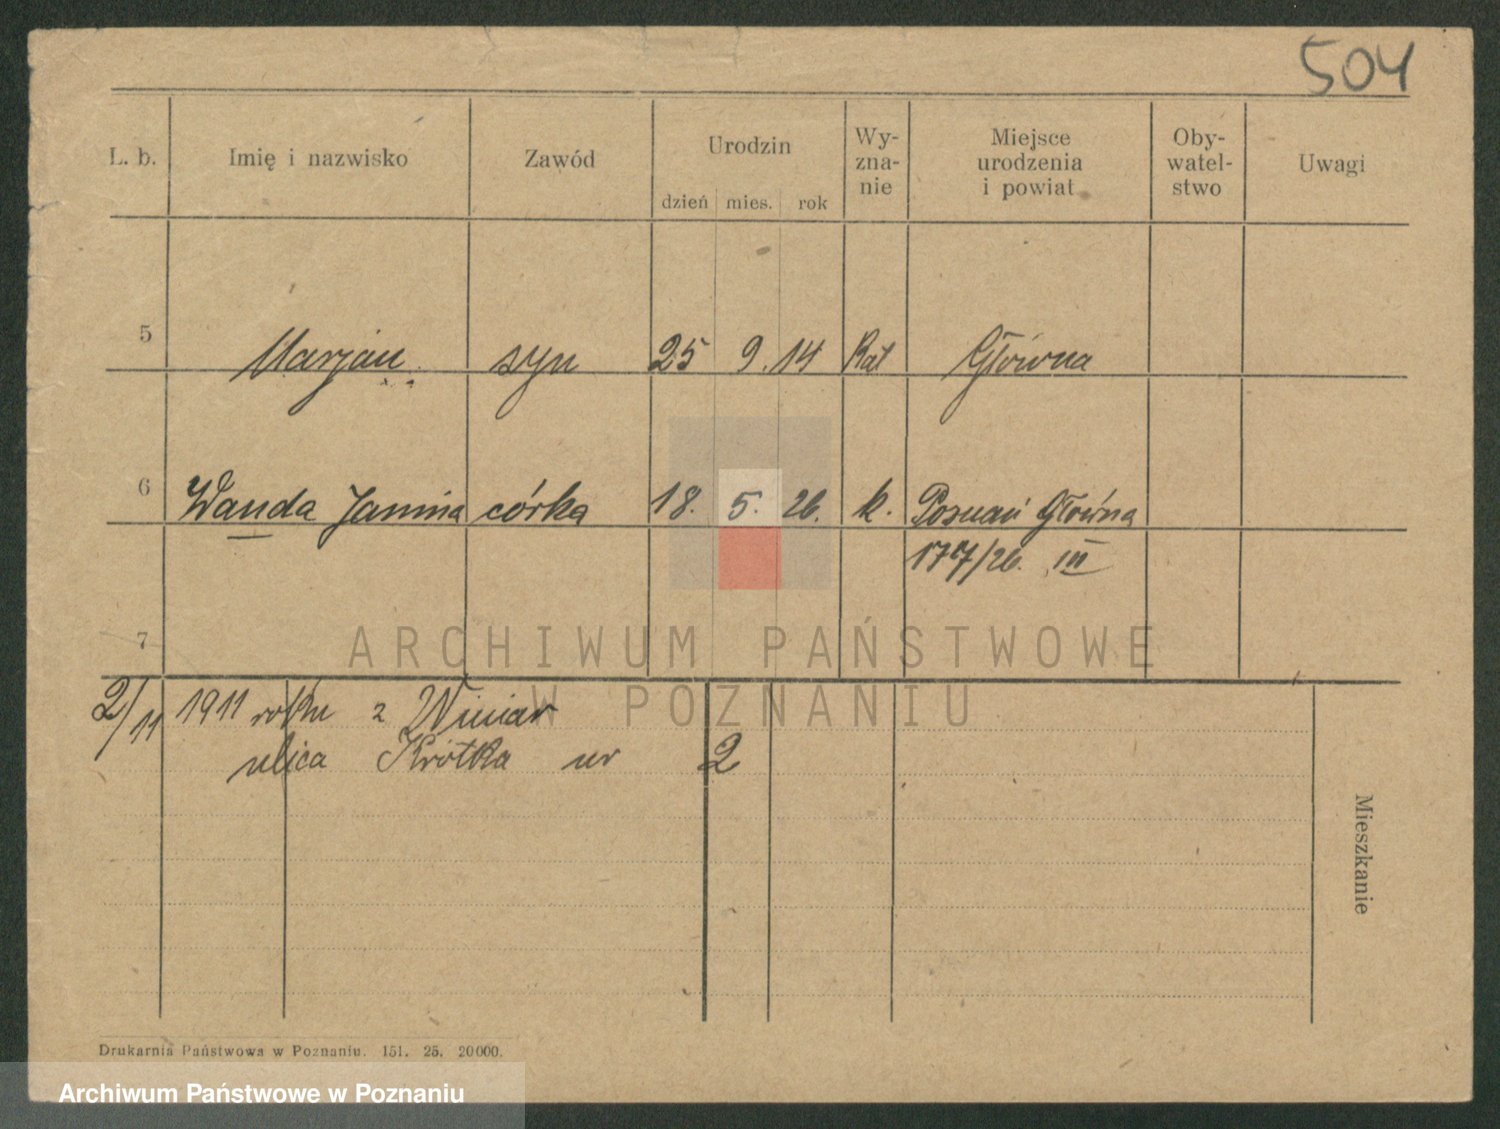 504
L. b. Imię i nazwisko Zawód Urodzin dzień mies. rok Wy-zna-nie Miejsce urodzenia i powiat Oby-watel-stwo Uwagi
5 Marjan syn 25 9. 14 Kat Główna
6 Wanda Janina córka 18. 5. 26. k. Poznań Główna
177/26. III
7
ARCHIWUM PAŃSTWOWE
W POZNANIU
2/11 1911 roku z Winiar
ulica Krótka nr 2
Mieszkanie
Drukarnia Państwowa w Poznaniu. 151. 25. 20000.
Archiwum Państwowe w Poznaniu